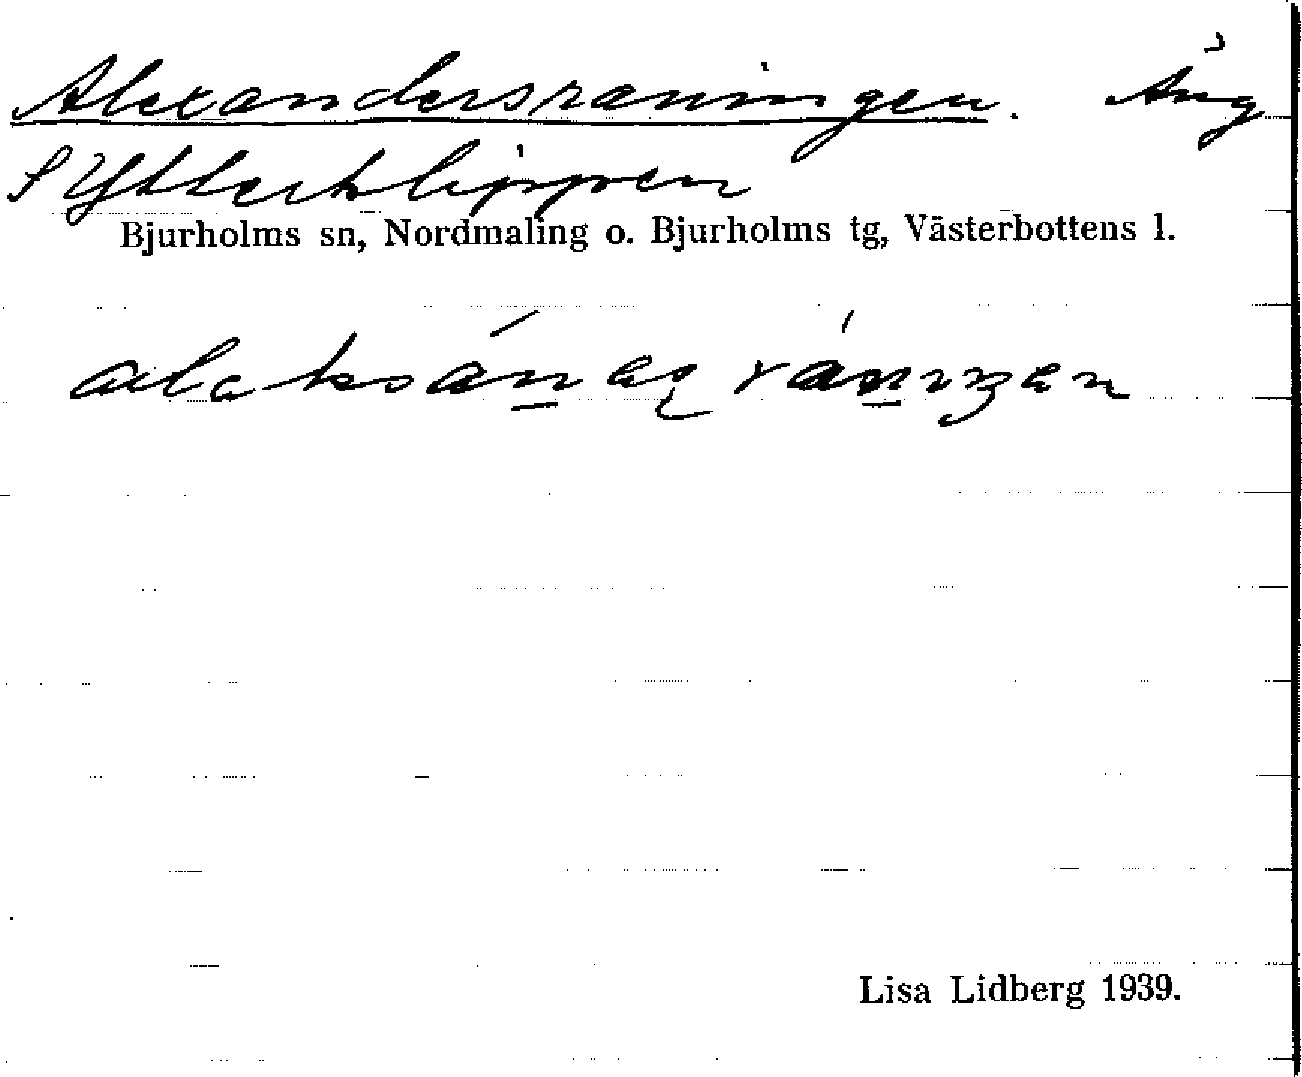 Alexandersraningen. Äng
S Ytterklippen
Bjurholms sn, Nordmaling o. Bjurholms tg, Västerbottens l.
Lisa Lidberg 1939.